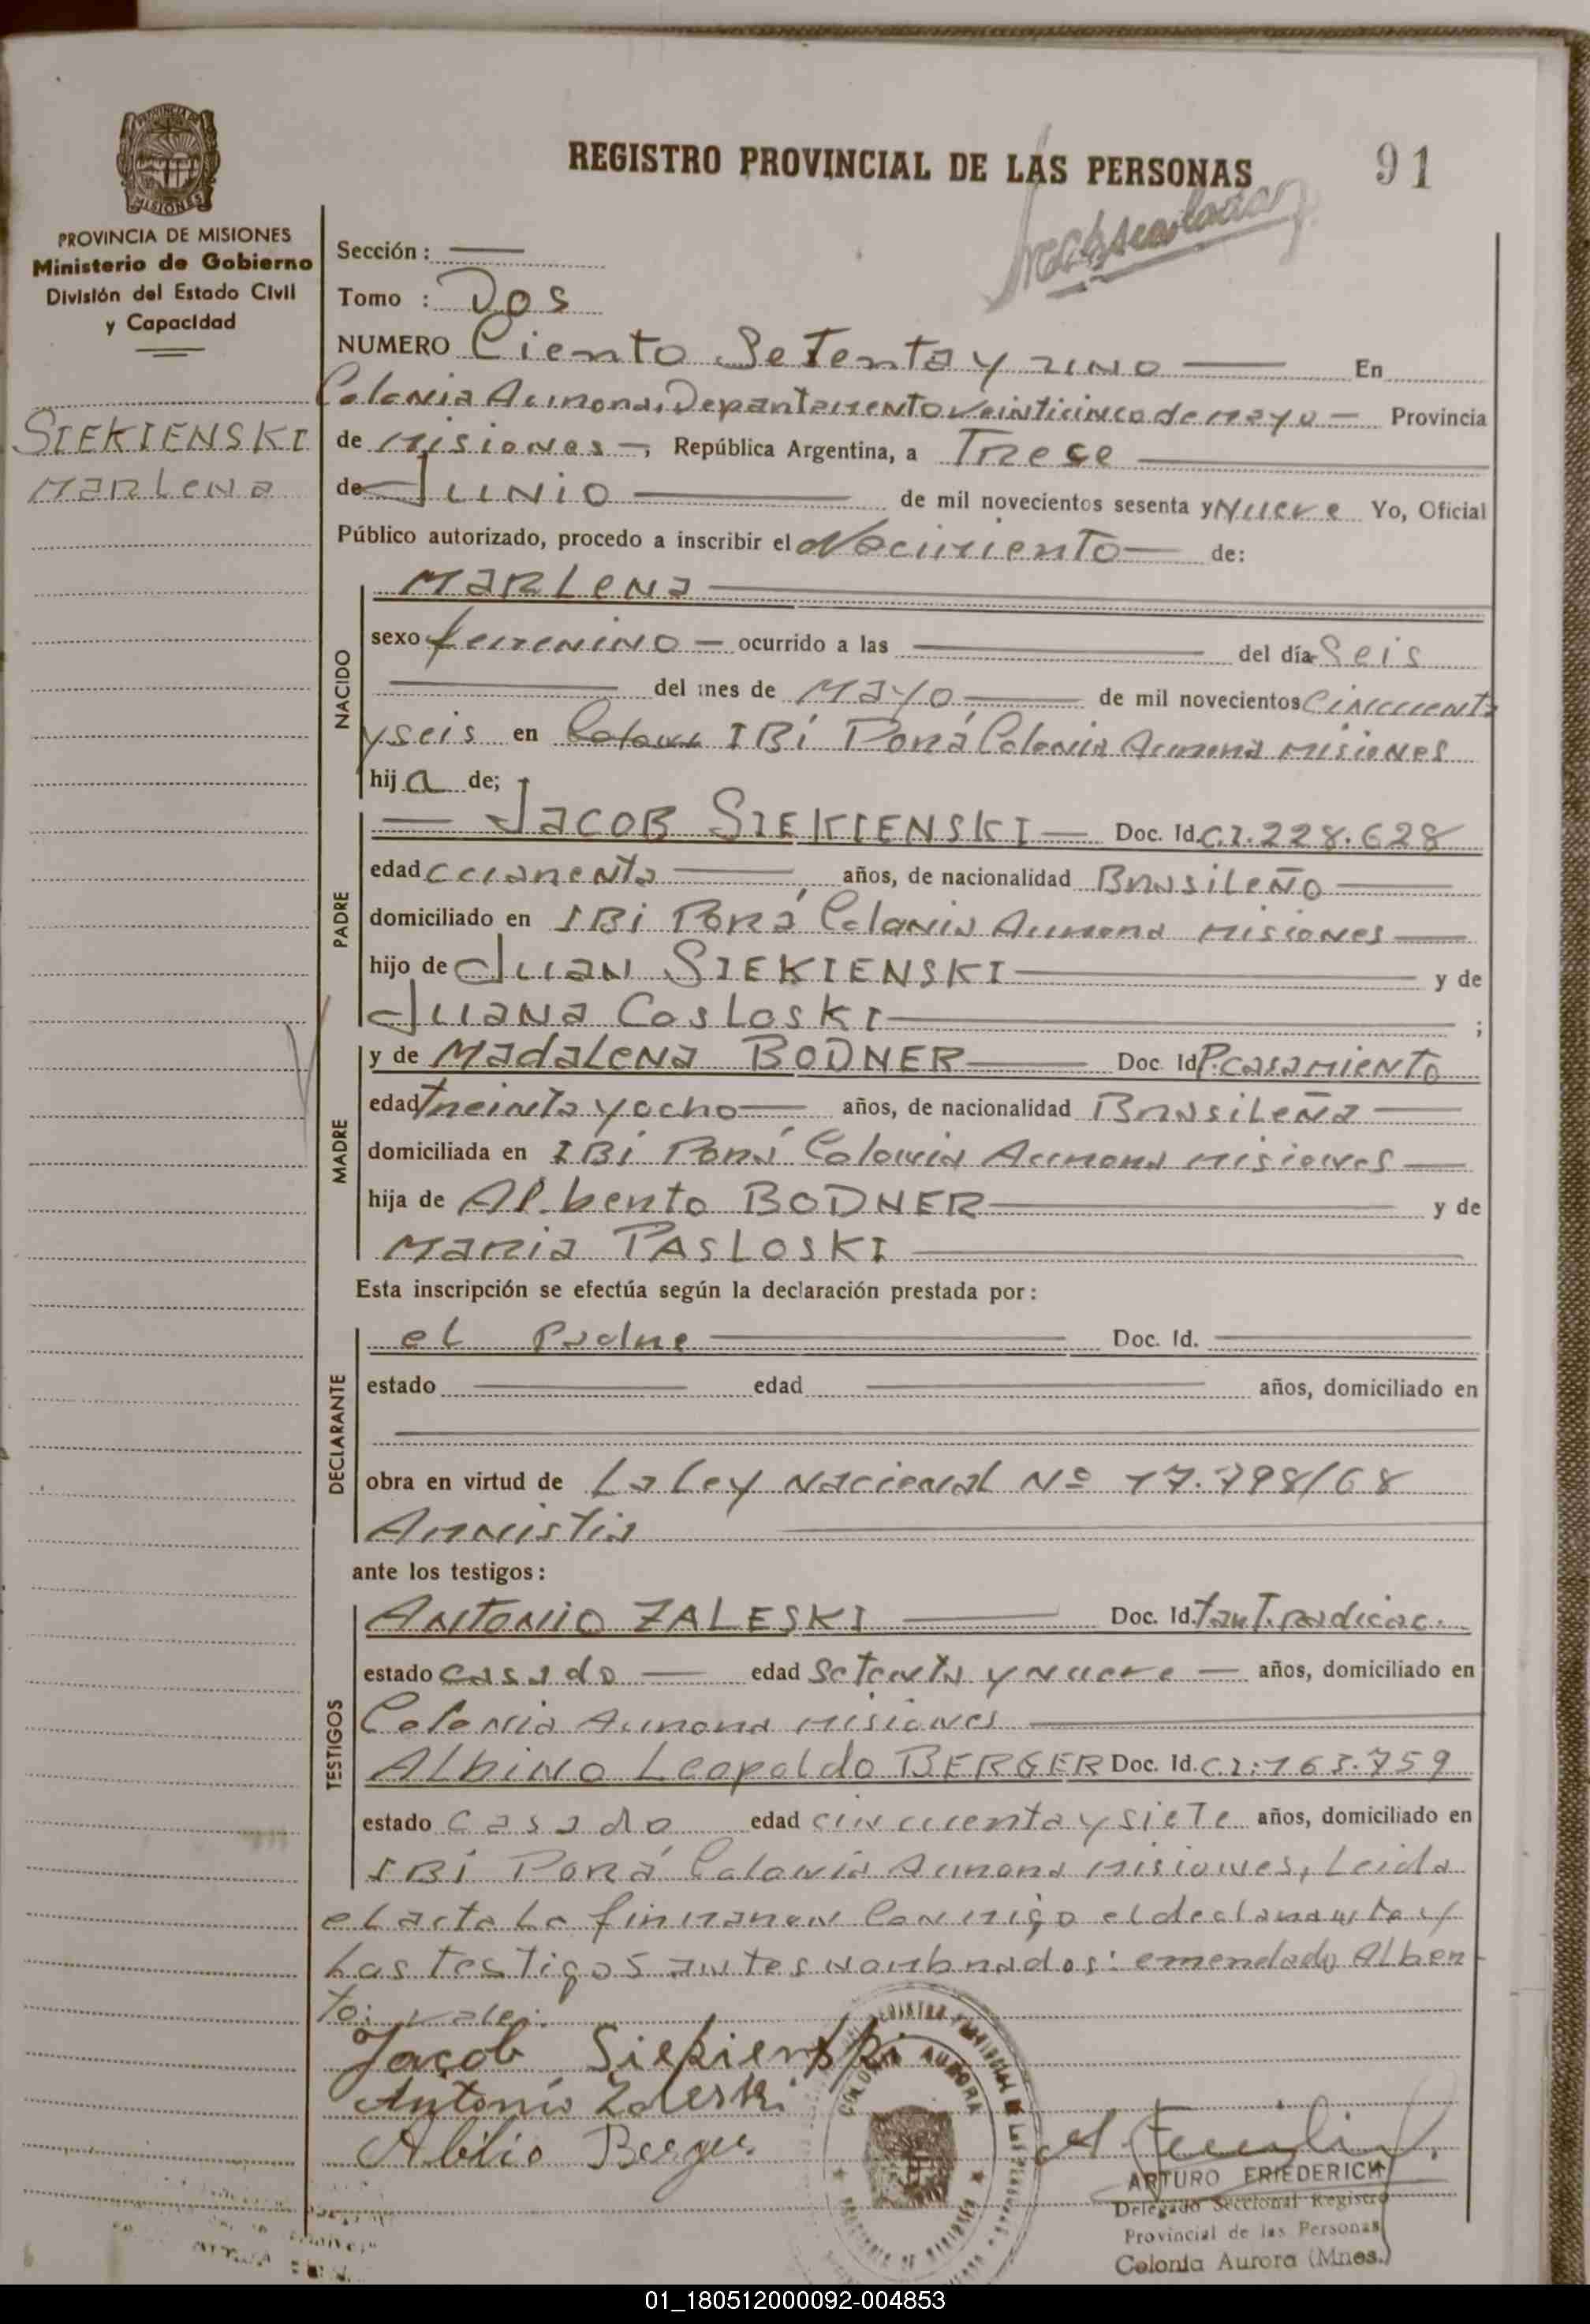 REGISTRO PROVINCIAL DE LAS PERSONAS
91
PROVINCIA DE MISIONES
Ministerio de Gobierno
División del Estado Civil
y Capacidad
SIEKIENSKI
Marlena
Sección :
Tomo : Dos
NUMERO Ciento Setenta y uno En
Colonia Aurora, Departamento veinticinco de mayo Provincia
de Misiones, República Argentina, a Trece
de Junio de mil novecientos sesenta y Nueve Yo, Oficial
Público autorizado, procedo a inscribir el Nacimiento de:
NACIDO
Marlena
sexo femenino ocurrido a las del día Seis
del mes de Mayo de mil novecientos Cincuenta
y seis en IBí Porá Colonia Aurora Misiones
hija de;
PADRE
Jacob SIEKIENSKI Doc. Id. C.I. 228.628
edad cuarenta años, de nacionalidad Brasileño
domiciliado en IBí Porá Colonia Aurora Misiones
hijo de Juan SIEKIENSKI y de
Juana Cosloski ;
MADRE
y de Madalena BODNER Doc. Id P. casamiento
edad treinta y ocho años, de nacionalidad Brasileña
domiciliada en IBí Porá Colonia Aurora Misiones
hija de Alberto BODNER y de
Maria PASLOSKI
Esta inscripción se efectúa según la declaración prestada por :
DECLARANTE
el Padre Doc. Id.
estado edad años, domiciliado en
obra en virtud de La Ley Nacional Nº 17.798/68
Amnistia
ante los testigos :
TESTIGOS
Antonio ZALESKI Doc. Id. radicac.
estado casado edad Setenta y nueve años, domiciliado en
Colonia Aurora Misiones
Albino Leopoldo BERGER Doc. Id. C.I. 163.759
estado casado edad cincuenta y siete años, domiciliado en
IBí Porá Colonia Aurora Misiones, Leida
el acta la firmaron Conmigo el declarante y
Los testigos antes nombrados: emendado Alber-
to: vale.
Jacob Siekienski
Antonio Zaleski
Berger
COLONIA AURORA
PROVINCIA DE MISIONES
ARTURO FRIEDERICH
Delegado Seccional Registro
Provincial de las Personas
Colonia Aurora (Mnes.)
01_180512000092-004853